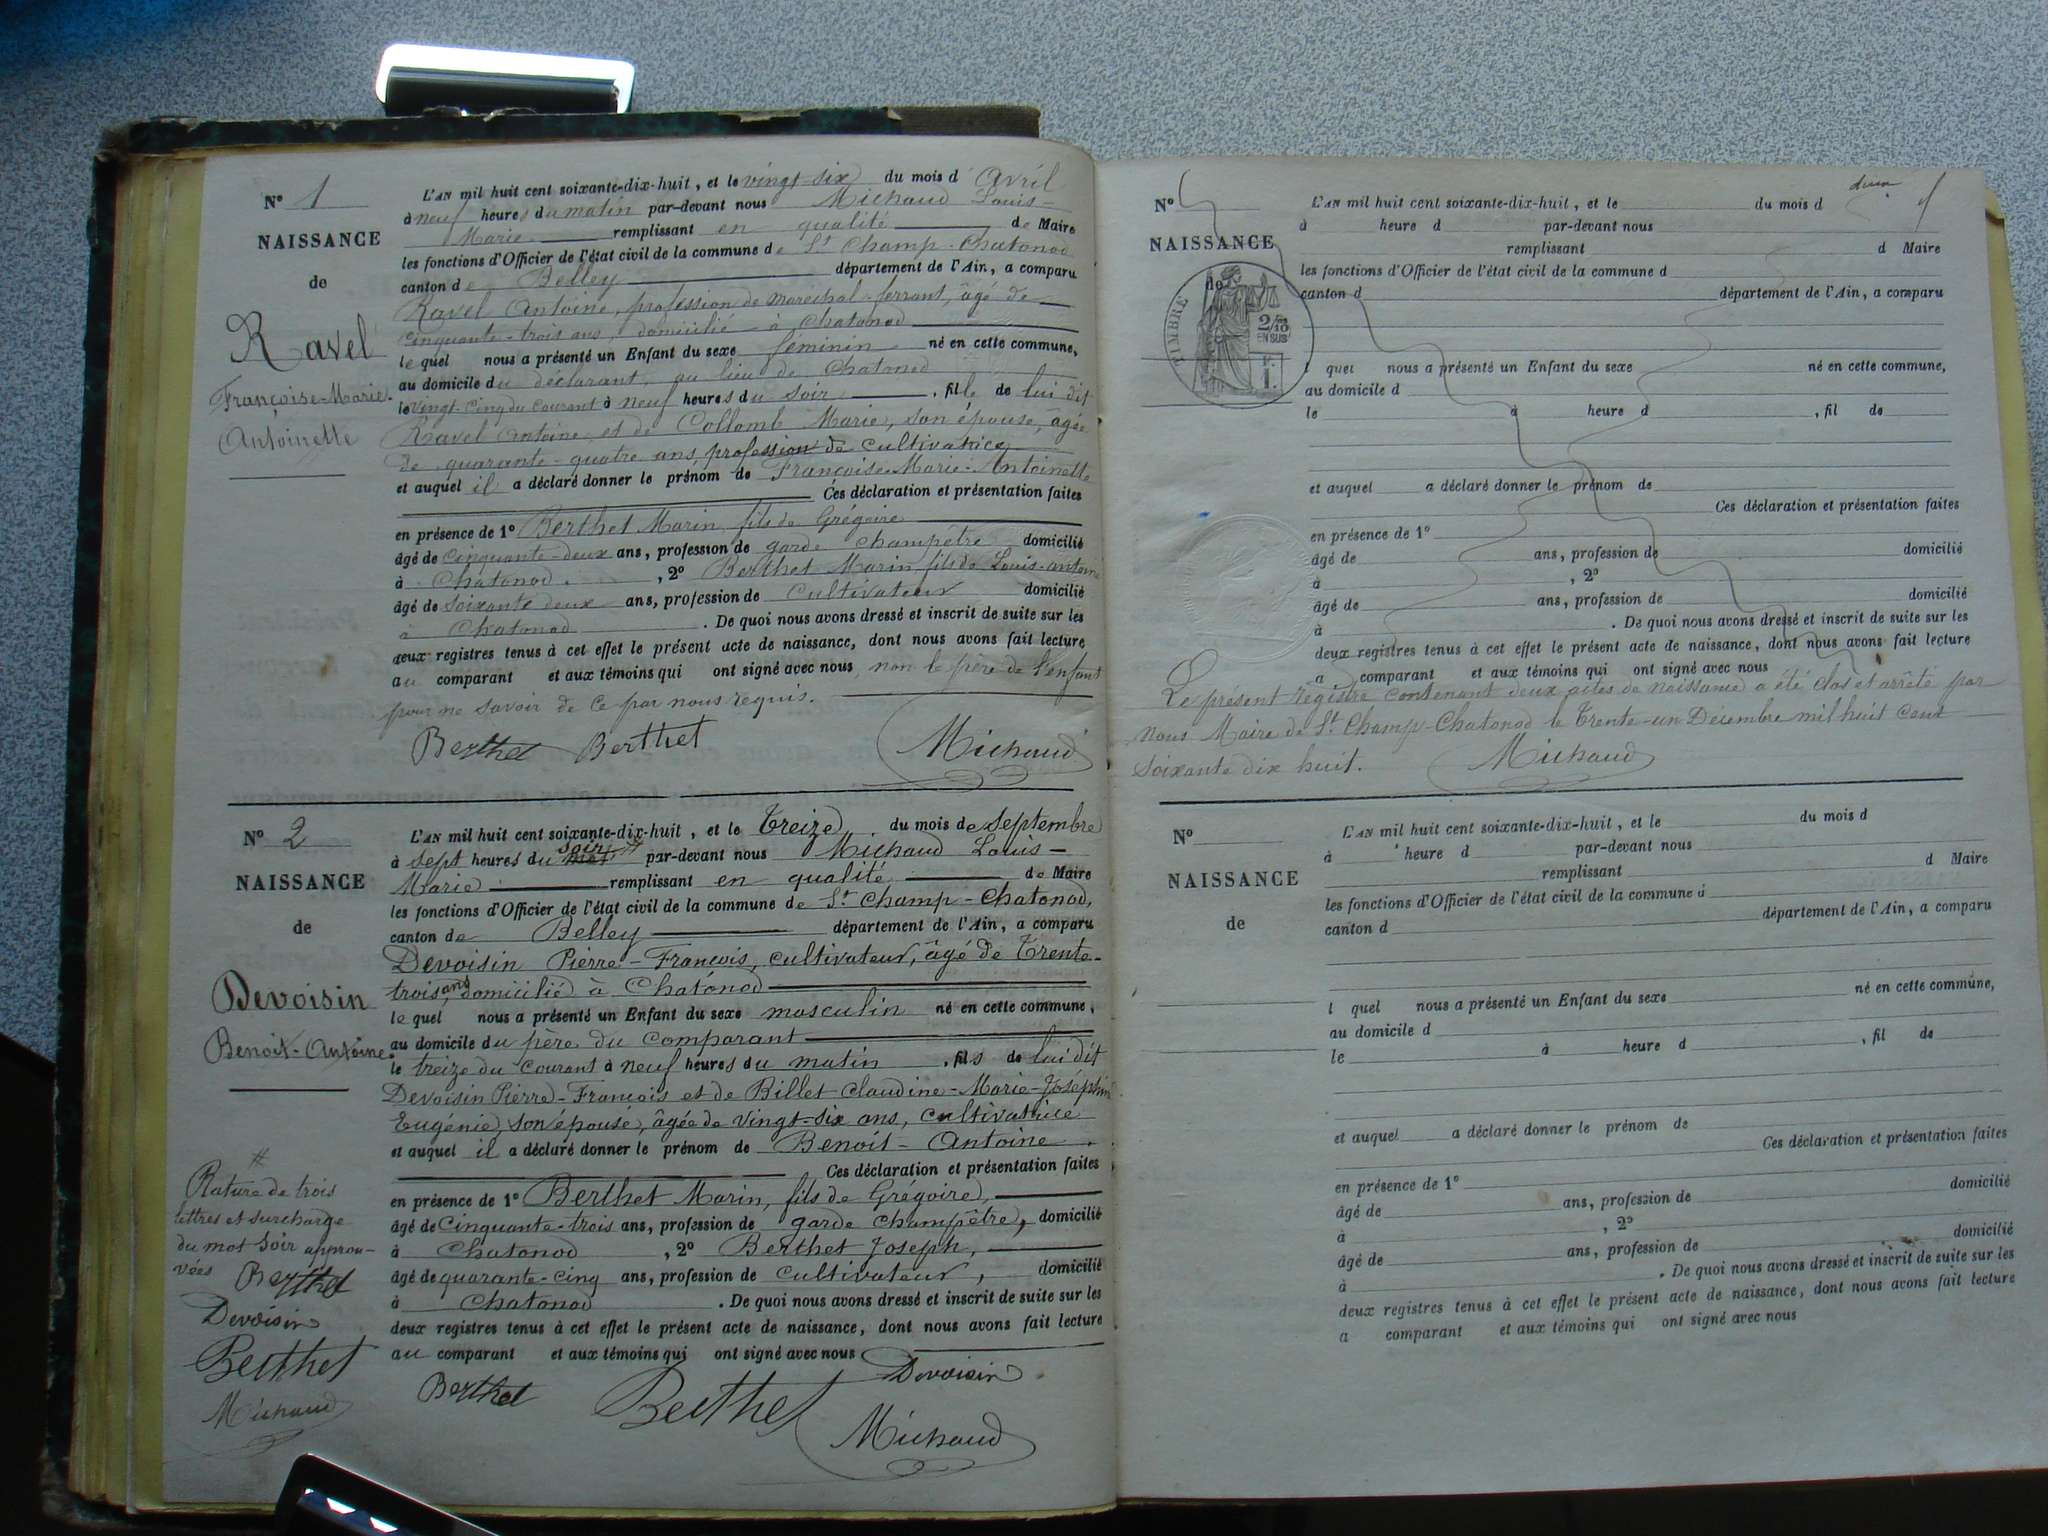 N° 1
NAISSANCE
de
Ravel
Françoise-Marie-
Antoinette
L'AN mil huit cent soixante-dix-huit, et le vingt-six du mois d'Avril
à neuf heures du matin par-devant nous Michaud Louis-
Marie remplissant en qualité de Maire
les fonctions d'Officier de l'état civil de la commune de St Champ-Chatonod
canton de Belley département de l'Ain, a comparu
Ravel Antoine, profession de maréchal-ferrant, âgé de
cinquante-trois ans, domicilié à Chatonod
lequel nous a présenté un Enfant du sexe féminin né en cette commune,
au domicile du déclarant, au lieu de Chatonod
le vingt-cinq du courant à neuf heures du soir, fille de lui dit
Ravel Antoine, et de Collomb Marie, son épouse, âgée
de quarante-quatre ans, profession de cultivatrice
et auquel il a déclaré donner le prénom de Françoise-Marie-Antoinette
Ces déclaration et présentation faites
en présence de 1° Berthet Marin, fils de Grégoire
âgé de cinquante-deux ans, profession de garde champêtre domicilié
à Chatonod, 2° Berthet Marin fils de Louis-antoine
âgé de soixante deux ans, profession de cultivateur domicilié
à Chatonod. De quoi nous avons dressé et inscrit de suite sur les
deux registres tenus à cet effet le présent acte de naissance, dont nous avons fait lecture
au comparant et aux témoins qui ont signé avec nous, non le père de l'enfant
pour ne savoir de ce par nous requis.
Berthet Berthet Michaud
N° 2
NAISSANCE
de
Devoisin
Benoit-Antoine
L'AN mil huit cent soixante-dix-huit, et le Treize du mois de Septembre
soir #
à sept heures du mat par-devant nous Michaud Louis-
Marie remplissant en qualité de Maire
les fonctions d'Officier de l'état civil de la commune de St Champ-Chatonod,
canton de Belley département de l'Ain, a comparu
Devoisin Pierre-François, cultivateur, âgé de Trente-
trois ans, domicilié à Chatonod
lequel nous a présenté un Enfant du sexe masculin né en cette commune,
au domicile du père du comparant
le treize du courant à neuf heures du matin, fils de lui dit
Devoisin Pierre-François et de Billet Claudine-Marie-Joséphine
Eugénie, son épouse, âgée de vingt-six ans, cultivatrice
et auquel il a déclaré donner le prénom de Benoit-Antoine
Ces déclaration et présentation faites
en présence de 1° Berthet Marin, fils de Grégoire,
âgé de Cinquante-trois ans, profession de garde champêtre, domicilié
à Chatonod, 2° Berthet Joseph,
âgé de quarante-cinq ans, profession de cultivateur, domicilié
à Chatonod. De quoi nous avons dressé et inscrit de suite sur les
deux registres tenus à cet effet le présent acte de naissance, dont nous avons fait lecture
au comparant et aux témoins qui ont signé avec nous Devoisin
Berthet Berthet
Michaud
#
Rature de trois
lettres et surcharge
du mot Soir approu-
vées Berthet
Devoisin
Berthet
Michaud
N°
NAISSANCE
de
TIMBRE
2/10
EN SUS
F.
1.
L'AN mil huit cent soixante-dix-huit, et le du mois d
à heure d par-devant nous
remplissant d Maire
les fonctions d'Officier de l'état civil de la commune d
canton d département de l'Ain, a comparu
l quel nous a présenté un Enfant du sexe né en cette commune,
au domicile d
le à heure d, fil de
et auquel a déclaré donner le prénom de
Ces déclaration et présentation faites
en présence de 1°
âgé de ans, profession de domicilié
à, 2°
âgé de ans, profession de domicilié
à. De quoi nous avons dressé et inscrit de suite sur les
deux registres tenus à cet effet le présent acte de naissance, dont nous avons fait lecture
a comparant et aux témoins qui ont signé avec nous
Le présent régistre contenant deux actes de naissance a été clos et arrêté par
nous Maire de St Champ-Chatonod le Trente-un Décembre mil huit cent
soixante dix huit. Michaud
N°
NAISSANCE
de
L'AN mil huit cent soixante-dix-huit, et le du mois d
à heure d par-devant nous
remplissant d Maire
les fonctions d'Officier de l'état civil de la commune d
canton d département de l'Ain, a comparu
l quel nous a présenté un Enfant du sexe né en cette commune,
au domicile d
le à heure d, fil de
et auquel a déclaré donner le prénom de
Ces déclaration et présentation faites
en présence de 1°
âgé de ans, profession de domicilié
à, 2°
âgé de ans, profession de domicilié
à. De quoi nous avons dressé et inscrit de suite sur les
deux registres tenus à cet effet le présent acte de naissance, dont nous avons fait lecture
a comparant et aux témoins qui ont signé avec nous